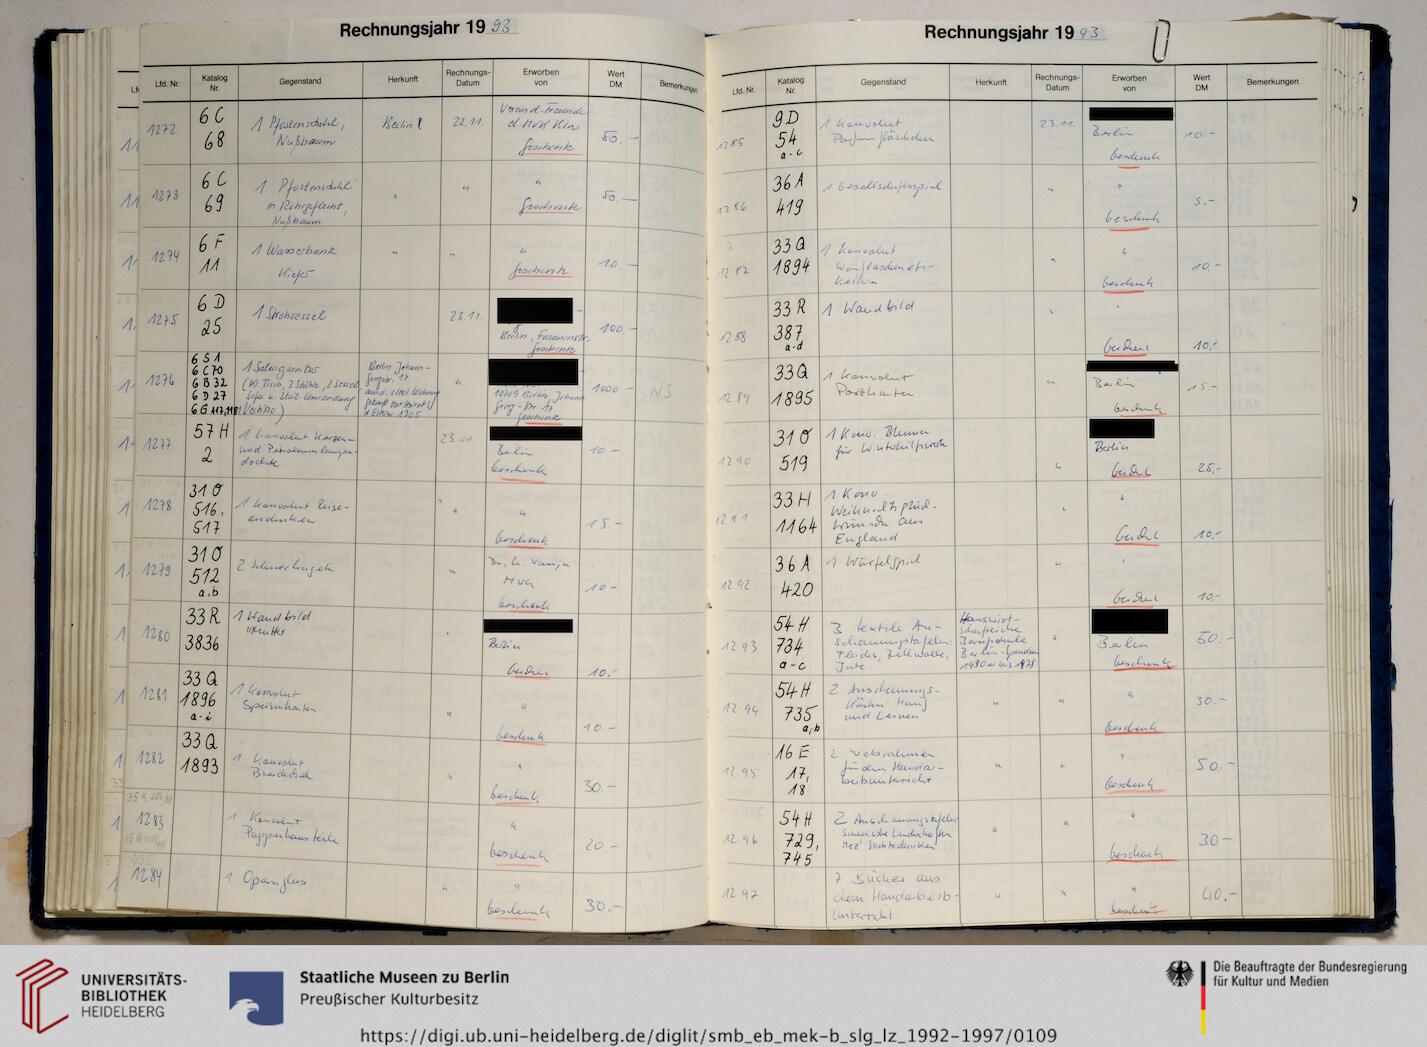 Rechnungsjahr 1993
Lfd. Nr.
Katalog Nr.
Gegenstand
Herkunft
Rechnungs-Datum
Erworben von
Wert DM
Bemerkungen
1272
6 C
68
1 Pfostenstuhl,
Nußbaum
Berlin
22.11.
Verein d. Freunde
d. MVK Bln
Geschenk
50.-
1273
6 C
69
1 Pfostenstuhl
m. Rohrgeflecht,
Nußbaum
"
"
"
Geschenk
50.-
1274
6 F
11
1 Wasserbank
Kiefer
"
"
"
Geschenk
1275
6 D
25
1 Strohsessel
23.11.
Berlin, Fasanenstr.
Geschenk
100.-
1276
6 S 1
6 C 70
6 B 32
6 D 27
6 G 117, 118
1 Salongarnitur
(1 Tisch, 2 Stühle, 2 Sessel,
Sofa u.
Berlin, Johann-
Georgstr. 17
"
10709 Berlin, Johann
Georg-Str. 17
Geschenk
1000.-
NS
1277
57 H
2
1 Konvolut Kerzen-
und Petroleumlampen-
dochte
23.11.
Berlin
Geschenk
10.-
1278
31 O
516,
517
1 Konvolut Reise-
andenken
"
"
Geschenk
15.-
1279
31 O
512
a,b
2
"
Dr. K. Vanja
MVK
Geschenk
10.-
1280
33 R
3836
1 Wandbild
"Mutter
"
Berlin
Geschenk
10.-
1281
33 Q
1896
a-i
1 Konvolut
Speisekarten
"
"
Geschenk
10.-
1282
33 Q
1893
1 Konvolut
Bierdeckel
"
"
Geschenk
30.-
1283
1 Konvolut
Puppenhausteile
"
Geschenk
20.-
1284
1 Opernglas
"
"
Geschenk
30.-
Rechnungsjahr 1993
Lfd. Nr.
Katalog Nr.
Gegenstand
Herkunft
Rechnungs-Datum
Erworben von
Wert DM
Bemerkungen
1285
9 D
54
a-c
1 Konvolut
Parfumfläschchen
23.11.
Berlin
Geschenk
10.-
1286
36 A
419
1 Gesellschaftsspiel
"
"
Geschenk
5.-
1287
33 Q
1894
1 Konvolut
Weinflascheneti-
ketten
"
"
Geschenk
10.-
1288
33 R
387
a-d
1 Wandbild
"
"
Geschenk
10.-
1289
33 Q
1895
1 Konvolut
Postkarten
"
Berlin
Geschenk
15.-
1290
31 O
519
1 Konv. Blumen
für Winterhilfswerk
"
Berlin
Geschenk
25,-
1291
33 H
1164
1 Konv.
Weihnachtsglück-
wünsche aus
England
"
"
Geschenk
10,-
1292
36 A
420
1 Würfelspiel
"
Geschenk
10,-
1293
54 H
734
a-c
3 textile An-
schauungstafeln:
Flachs, Zellwolle,
Jute.
Hauswirt-
schaftliche
Berufsschule
Berlin-Spandau
1930er bis 1978
"
Berlin
Geschenk
50.-
1294
54 H
735
a,b
2 Anschauungs-
kästen Hanf
und Leinen
"
"
"
Geschenk
30.-
1295
16 E
17,
18
2 Webrahmen
für den Handar-
beitsunterricht
"
"
"
Geschenk
50.-
1296
54 H
729,
745
2 Anschauungstafeln
"
"
"
Geschenk
30.-
1297
7 Bücher aus
dem Handarbeits-
unterricht
"
"
"
Geschenk
40.-
UNIVERSITÄTS-
BIBLIOTHEK
HEIDELBERG
Staatliche Museen zu Berlin
Preußischer Kulturbesitz
Die Beauftragte der Bundesregierung
für Kultur und Medien
https://digi.ub.uni-heidelberg.de/diglit/smb_eb_mek-b_slg_lz_1992-1997/0109